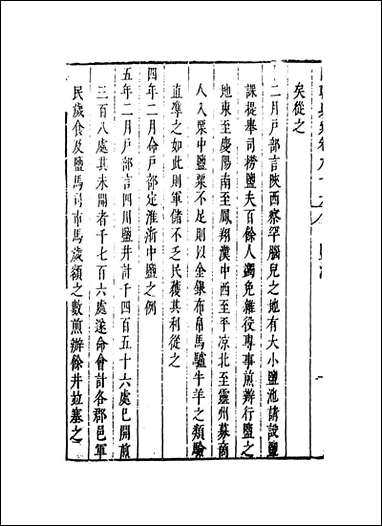 矣從之
二月戶部言陝西察罕腦兒之地有大小鹽池請設鹽
課提舉司撈鹽夫百餘人蠲免雜役專事煎辦行鹽之
地東至慶陽南至鳳翔漢中西至平凉北至靈州募商
人入粟中鹽粟不足則以金銀布帛馬驢牛羊之類驗
直準之如此則軍儲不乏民獲其利從之
四年二月命戶部定淮浙中鹽之例
五年二月戶部言四川鹽井計千四百五十六處已開煎
三百八處其未開者千七百六處遂命會計各郡邑軍
民歲食及鹽馬司市馬歲額之數煎辦餘井竝塞之